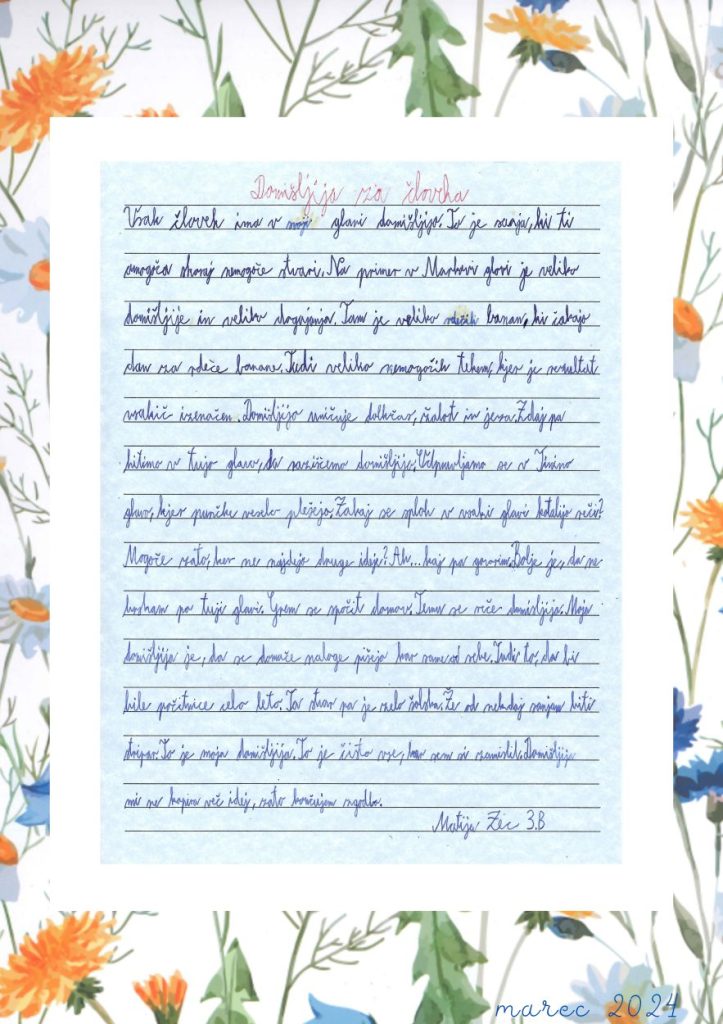 Domišljija za človka
Vsak človek ima v svoji glavi domišljijo. To je sanja, ki ti
omogoča skoraj nemogoče stvari. Na primer v Markovi glavi je veliko
domišljije in veliko dogajanja. Tam je veliko rdečih banan, ki čakajo
dan za rdeče banane. Tudi veliko nemogočih tekem, kjer je rezultat
vsakič izenačen. Domišljijo uničuje dolgčas, žalost in jeza. Zdaj pa
hitimo v tujo glavo, da raziščemo domišljijo. Odpravljamo se v Tinino
glavo, kjer punčke veselo plešejo. Zakaj se sploh v vsaki glavi kotalijo reči?
Mogoče zato, ker ne najdejo druge ideje? Ah... kaj pa govorim. Bolje je, da ne
brskam po tuji glavi. Grem se spočit domov. Temu se reče domišljija. Moja
domišljija je, da se domače naloge pišejo kar same od sebe. Tudi to, da bi
bile počitnice celo leto. Ta stvar pa je zelo šolska. Že od nekdaj sanjam biti
stripar. To je moja domišljija. To je čisto vse, kar sem si zamislil. Domišljija
mi ne kapira več idej, zato končujem zgodbo.
Matija Zec 3.B
marec 2024